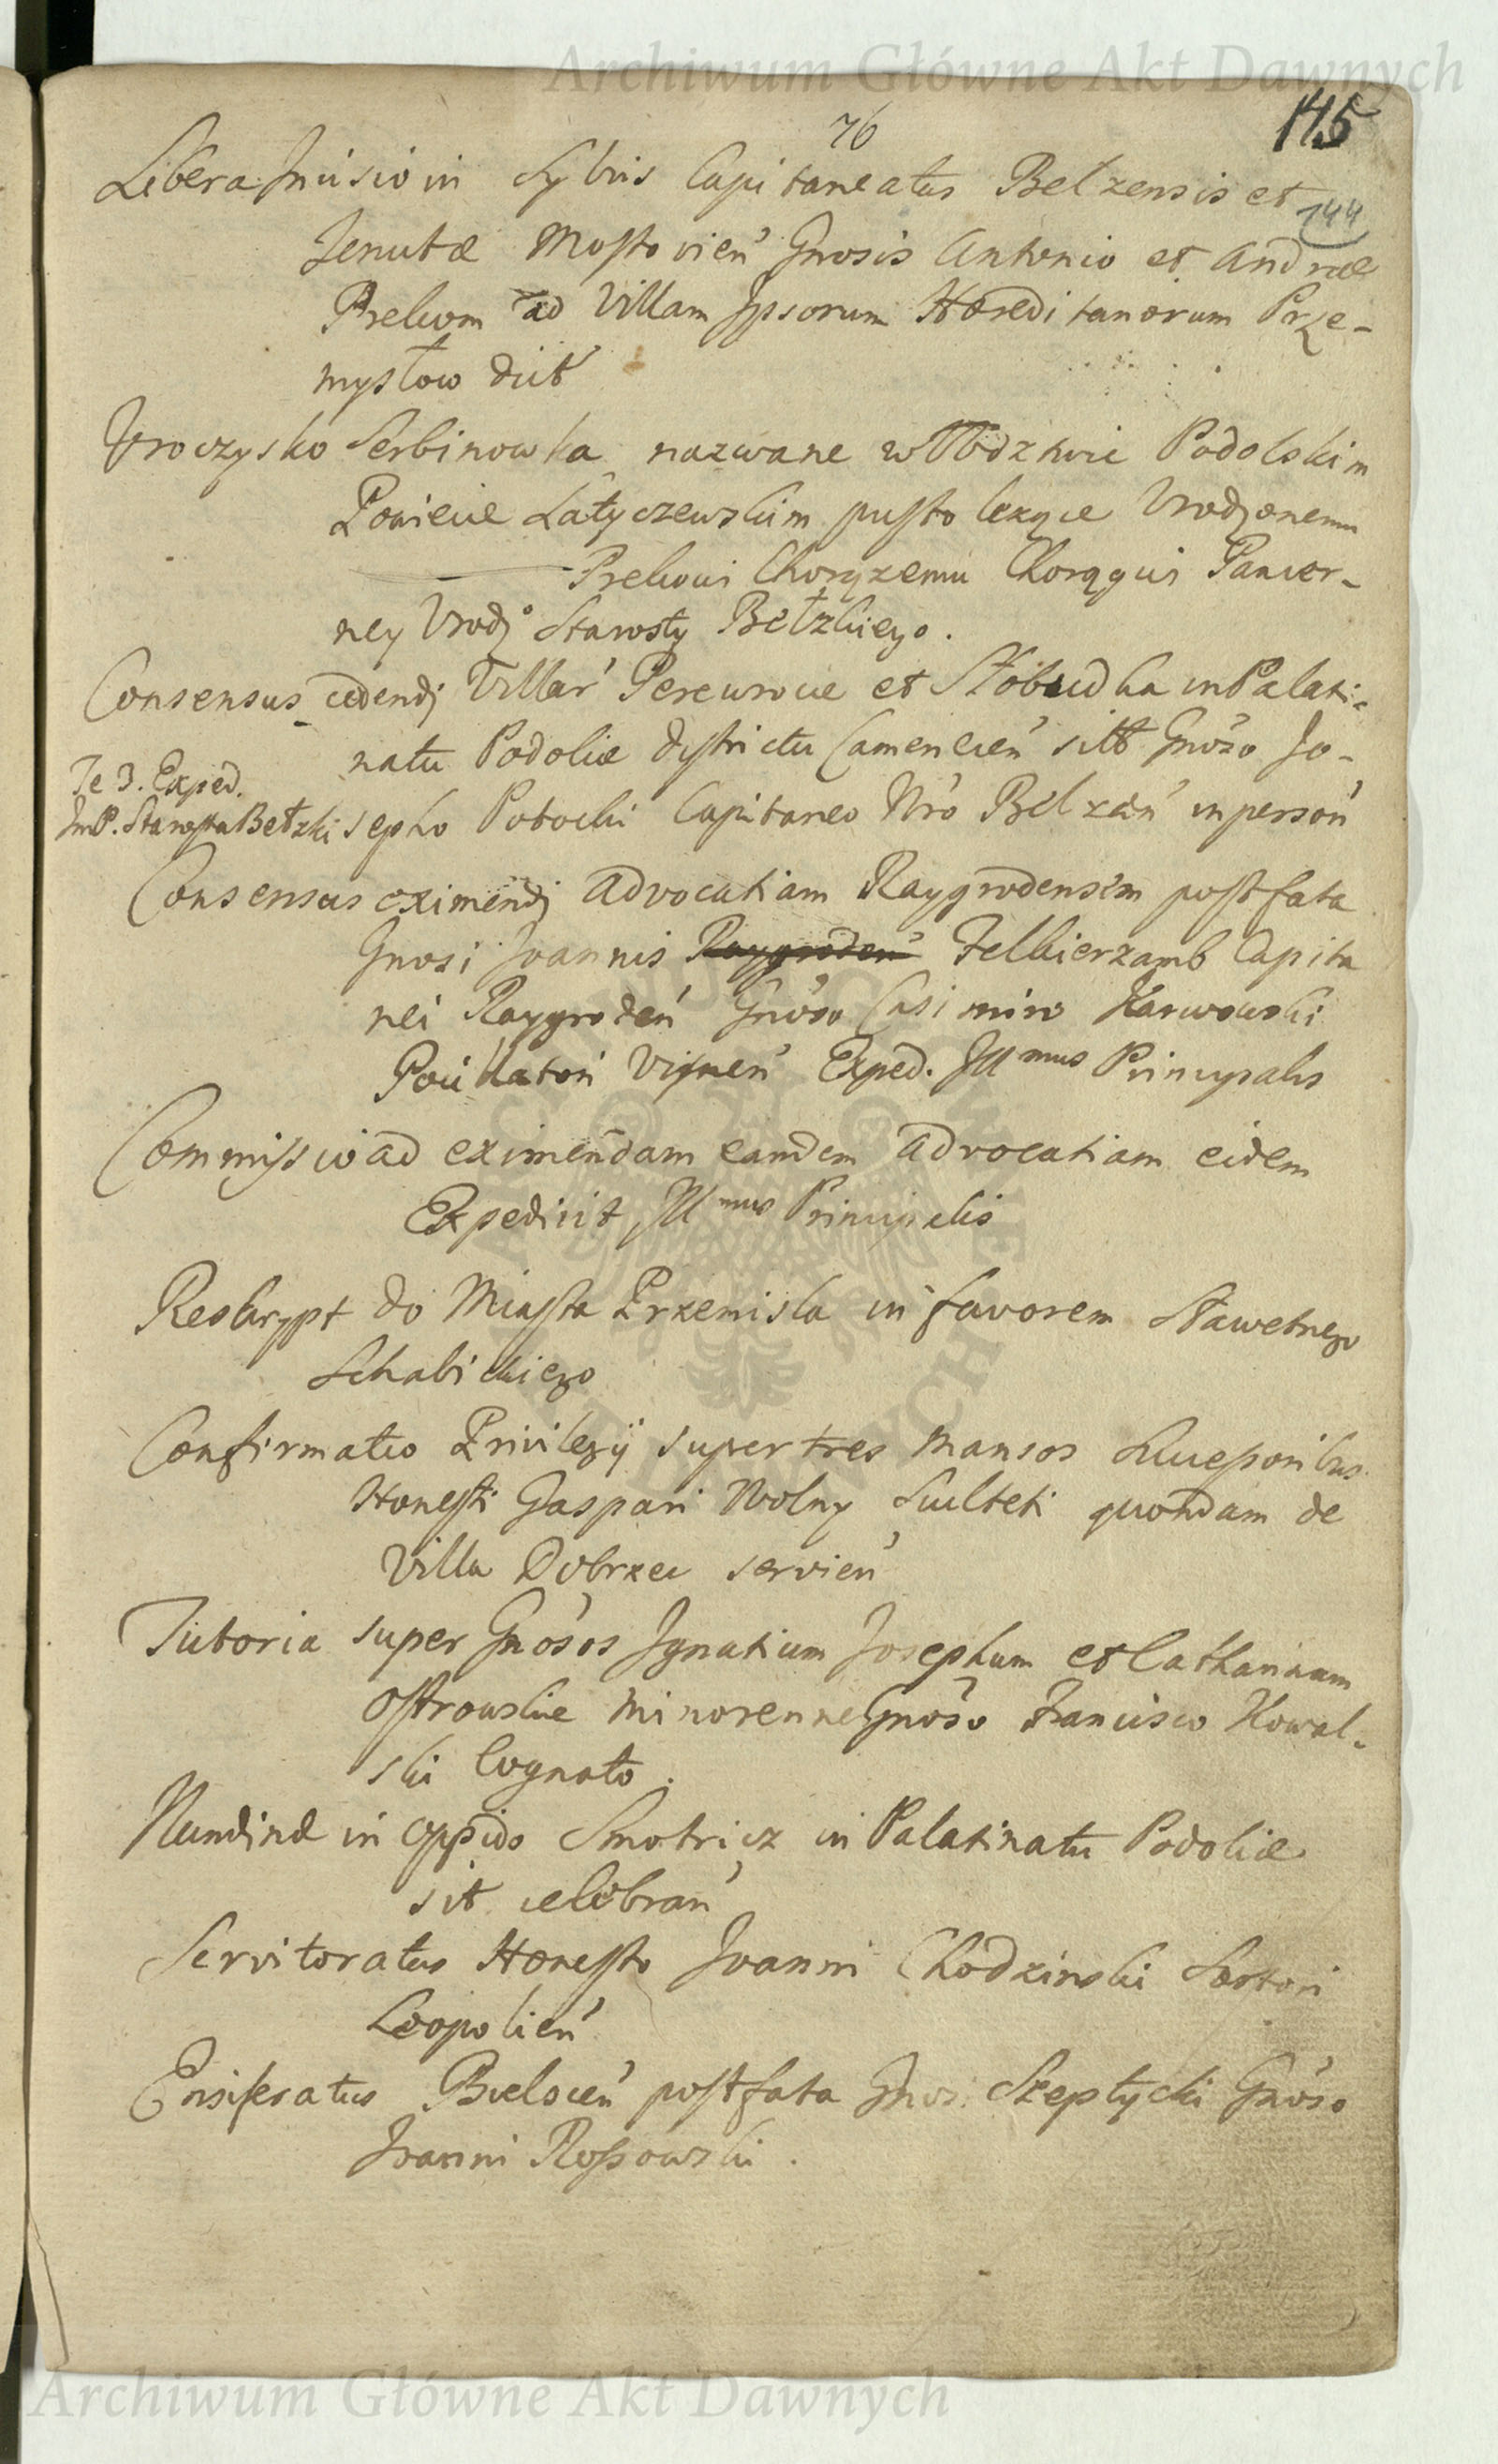 Archiwum Główne Akt Dawnych
76
145
144
Libera Incisio in Sylvis Capitaneatus Belzensis et
Tenutæ Mostovień Gnosis Antonio et Andreæ
ad Villam Ipsorum Hæreditariorum Prze-
mysłow dict
Uroczysko Serbinowka nazwane w Wdztwie Podolskim
Powiecie Latyczewskim pusto lezące Urodzonemu
Chorązemu Chorągwi Pancer-
ney Urodzo Starosty Bełzkiego.
Consensus cedendi Villar Perewrocie et Słobudka in Palati-
natu Podoliæ districtu Camenecień sitt Gnoso Jo-
Te 3. Exped.
ImP. Starosta Bełzki
sepho Potocki Capitaneo Nro Belzeń in person
Consensus eximendi Advocatiam Raygrodensem post fata
Gnosi Joannis Raygrodeń Felkierzamb Capita
nei Raygrodeń Gnoso Casimiro Karwowski
Pocillatori Visneń Exped. Illmus Principalis
Commissio ad eximendam eamdem advocatiam eidem
Expedivit Illmus Principalis
Reskrypt do Miasta Przemisla in favorem Sławetnego
Schabickiego
Confirmatio Privilegij super tres mansos Successoribus
Honesti Gaspari Wolny Sculteti quondam de
Villa Dobrzec servień
Tutoria super Gnosos Ignatium Josephum et Catharinam
Ostrowskie minorenne Gnoso Francisco Kowal-
ski Cognato.
Nundinæ in oppido Smotricz in Palatinatu Podoliæ
sit celebrań
Servitoratus Honesto Joanni Chodzinski Sartori
Leopolień
Ensiferatus Bielscień post fata Gnosi Szeptycki Gnoso
Joanni Rossowski.
Archiwum Główne Akt Dawnych